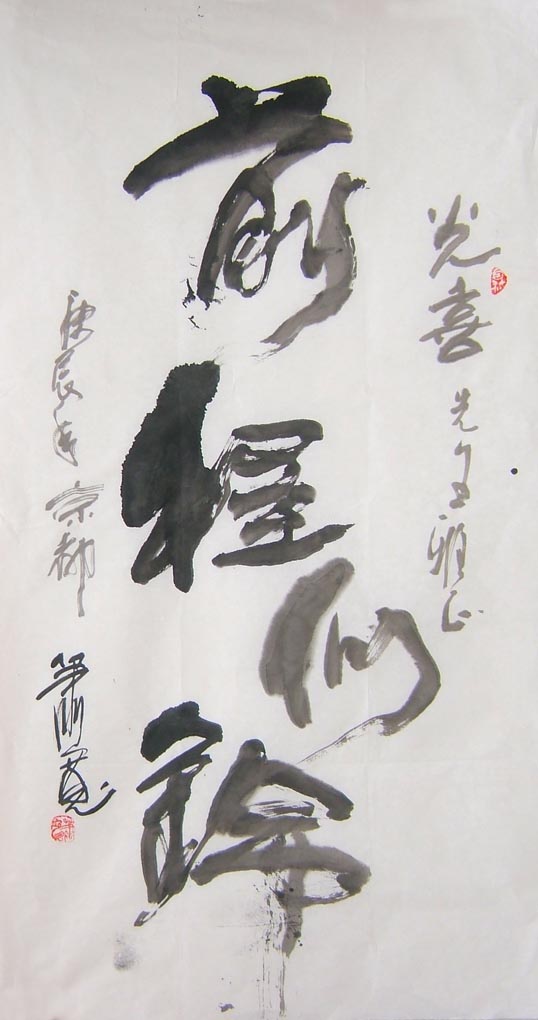 光喜先生雅正
前程似錦
庚辰年京都
蕭寬